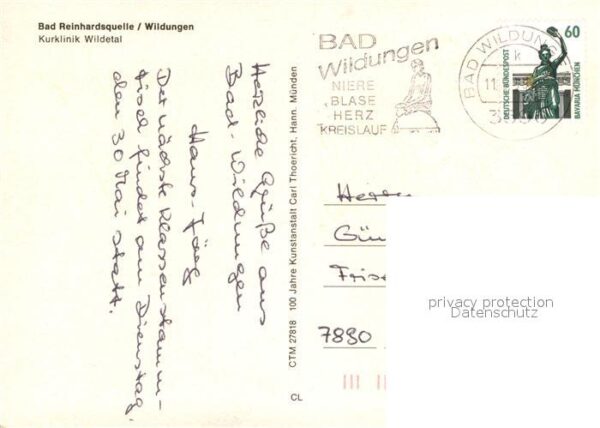 Bad Reinhardsquelle / Wildungen
Kurklinik Wildetal
Herzliche Grüße aus
Bad-Wildungen
Hans-Jörg
Der nächste Klassenstamm-
tisch findet am Dienstag,
den 30 Mai statt.
CTM 27818 100 Jahre Kunstanstalt Carl Thoericht, Hann. Münden
CL
BAD
Wildungen
NIERE
BLASE
HERZ
KREISLAUF
BAD WILDUN
k
11
60
DEUTSCHE BUNDESPOST
BAVARIA MÜNCHEN
Herrn
Gün
Fris
7890
privacy protection
Datenschutz